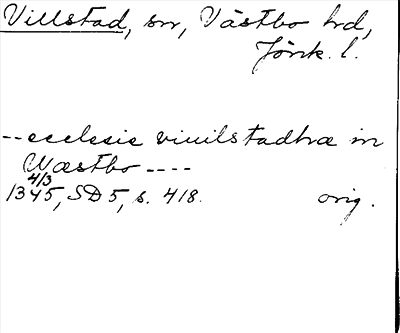 Villstad, sn, Västbo hd,
Jönk. l.
--ecclesie viuilstadhræ in
Wæstbo ----
4/3
1345, SD 5, s. 418. orig.